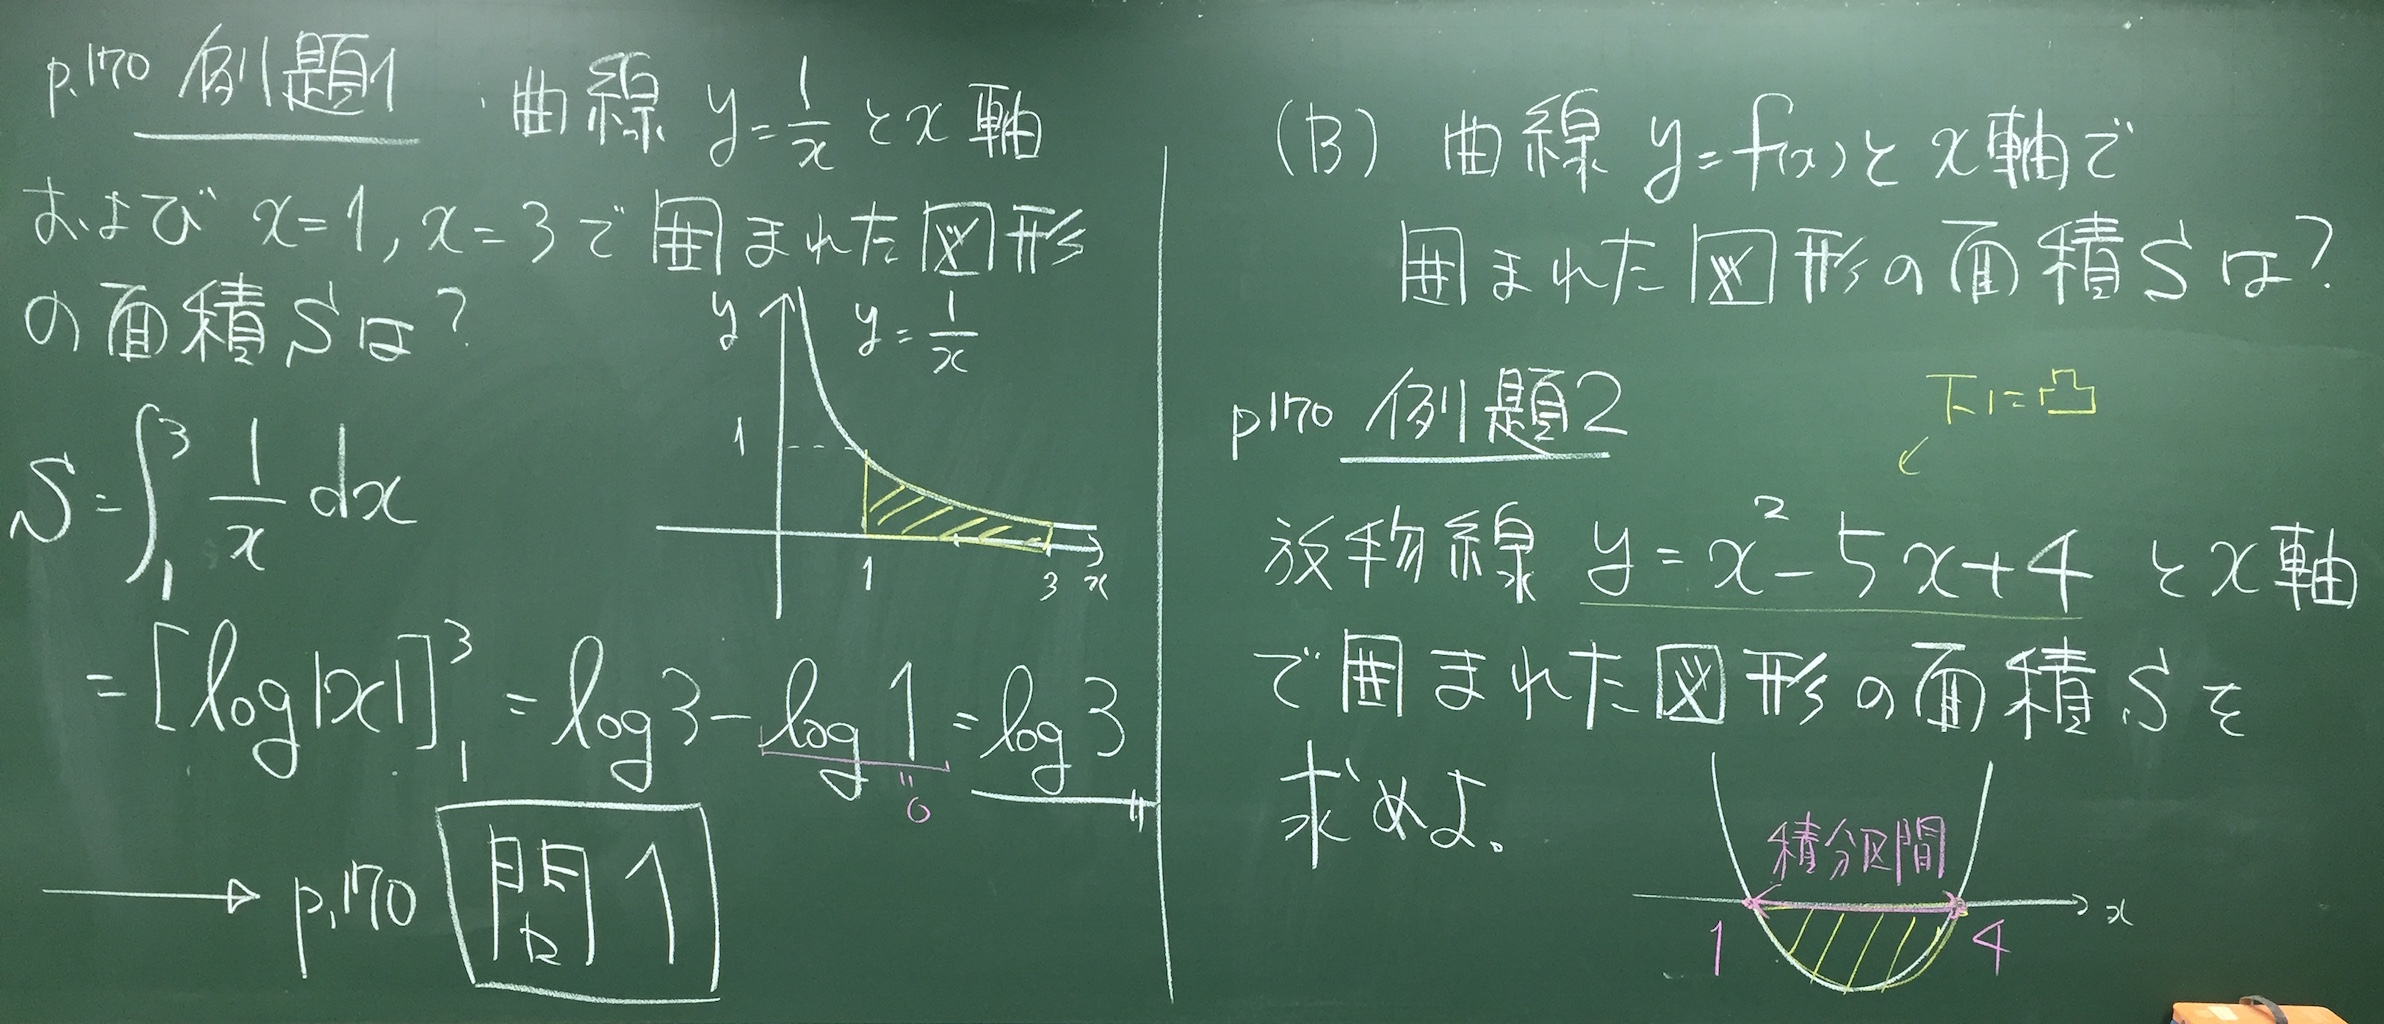 p.170 例題1 曲線 y=1/x とx軸
および x=1, x=3で囲まれた図形
の面積Sは?
y
y=1/x
1
1
3
x
S=∫₁³ 1/x dx
=[log|x|]₁³ =log3-log1=log3
"
0
→ p.170 問1
(B) 曲線 y=f(x)とx軸で
囲まれた図形の面積Sは?
p170 例題2
下に凸
放物線 y=x²-5x+4 とx軸
で囲まれた図形の面積Sを
求めよ。
積分区間
x
1
4